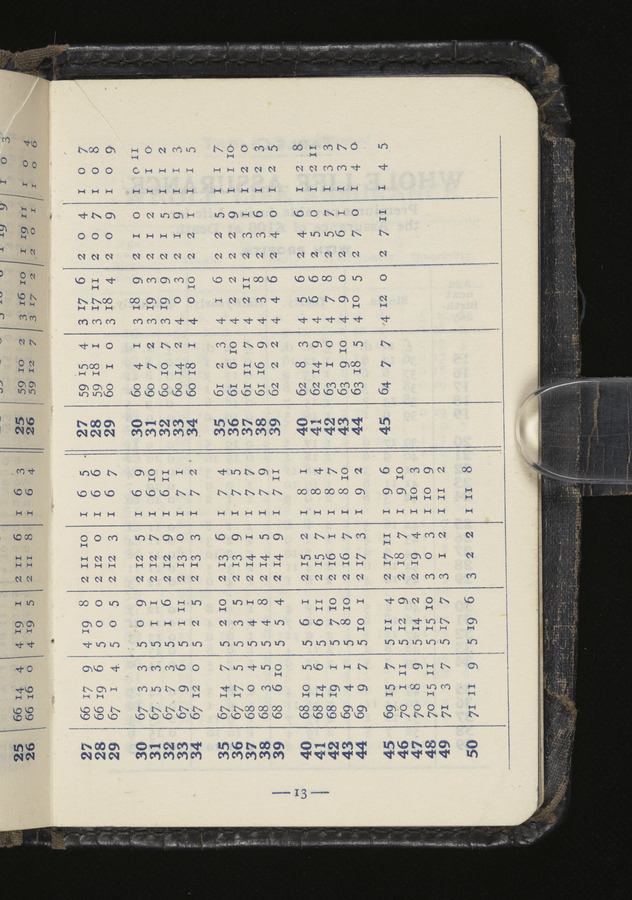 25 66 14 4 4 19 1 2 11 6 1 6 3 25 59 10 2 3 16 10 1 19 11
26 66 16 0 4 19 5 2 11 8 1 6 4 26 59 12 7 3 17 2 2 0 1 1 0 6
27 66 17 9 4 19 8 2 11 10 1 6 5 27 59 15 4 3 17 6 2 0 4 1 0 7
28 66 19 6 5 0 0 2 12 0 1 6 6 28 59 18 1 3 17 11 2 0 7 1 0 8
29 67 1 4 5 0 5 2 12 3 1 6 7 29 60 1 0 3 18 4 2 0 9 1 0 9
30 67 3 3 5 0 9 2 12 5 1 6 9 30 60 4 1 3 18 9 2 1 0 1 0 11
31 67 5 3 5 1 1 2 12 7 1 6 10 31 60 7 2 3 19 3 2 1 2 1 1 0
32 67 7 3 5 1 6 2 12 9 1 6 11 32 60 10 7 3 19 9 2 1 5 1 1 2
33 67 9 6 5 1 11 2 13 0 1 7 1 33 60 14 2 4 0 3 2 1 9 1 1 3
34 67 12 0 5 2 5 2 13 3 1 7 2 34 60 18 1 4 0 10 2 2 1 1 1 5
35 67 14 7 5 2 10 2 13 6 1 7 4 35 61 2 3 4 1 6 2 2 5 1 1 7
36 67 17 5 5 3 5 2 13 9 1 7 5 36 61 6 10 4 2 2 2 2 9 1 1 10
37 68 0 4 5 4 1 2 14 1 1 7 7 37 61 11 7 4 2 11 2 3 1 1 2 0
38 68 3 5 5 4 8 2 14 5 1 7 9 38 61 16 9 4 3 8 2 3 6 1 2 3
39 68 6 10 5 5 4 2 14 9 1 7 11 39 62 2 2 4 4 6 2 4 0 1 2 5
40 68 10 5 5 6 1 2 15 2 1 8 1 40 62 8 3 4 5 6 2 4 6 1 2 8
41 68 14 6 5 6 11 2 15 7 1 8 4 41 62 14 9 4 6 6 2 5 0 1 2 11
42 68 19 1 5 7 10 2 16 1 1 8 7 42 63 1 0 4 7 8 2 5 7 1 3 3
43 69 4 1 5 8 10 2 16 7 1 8 10 43 63 9 10 4 9 0 2 6 3 1 3 7
44 69 9 7 5 10 1 2 17 3 1 9 2 44 63 18 5 4 10 5 2 7 0 1 4 0
45 69 15 7 5 11 4 2 17 11 1 9 6 45 64 7 7 4 12 0 2 7 11 1 4 5
46 70 1 11 5 12 9 2 18 7 1 9 10
47 70 8 9 5 14 2 2 19 4 1 10 3
48 70 15 11 5 15 10 3 0 3 1 10 9
49 71 3 7 5 17 7 3 1 2 1 11 2
50 71 11 9 5 19 6 3 2 2 1 11 8
— 13 —